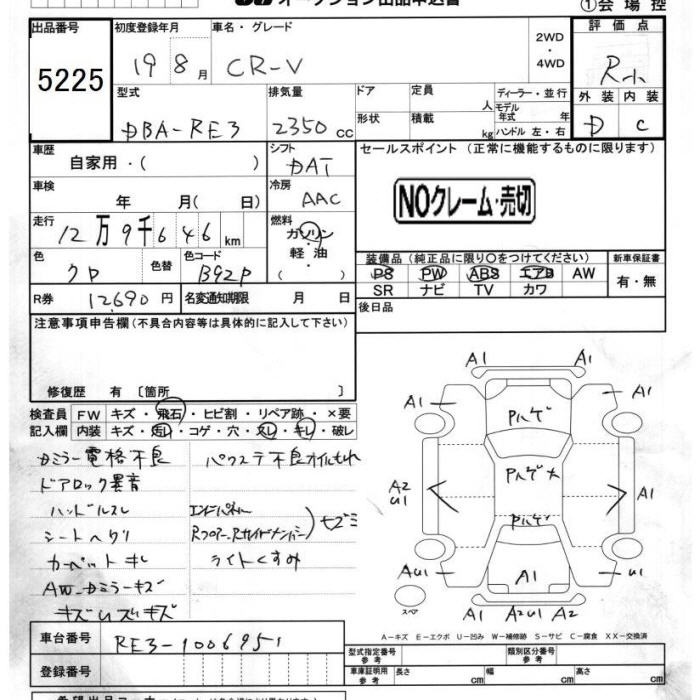 オークション出品申込書
①会場控
出品番号 初度登録年月 車名・グレード 評価点
5225 19 8月 CR-V 2WD・4WD R小
型式 排気量 ドア 定員 人 ディーラー・並行 外装 内装
DBA-RE3 2350cc 形状 積載 kg モデル年式 年 ハンドル 左・右 D C
車歴 自家用・( ) シフト DAT セールスポイント (正常に機能するものに限ります)
車検 年 月( 日) 冷房 AAC NOクレーム・売切
走行 12万9千646km 燃料 ガソリン・軽油・( )
色 クロ 色替 色コード B92P 装備品 (純正品に限り○をつけてください) 新車保証書
PS PW ABS エアB AW 有・無
SR ナビ TV カワ
R券 12,690円 名変通知期限 月 日 後日品
注意事項申告欄(不具合内容等は具体的に記入して下さい)
修復歴 有 [箇所 ]
検査員 FW キズ・飛石・ヒビ割・リペア跡・×要
記入欄 内装 キズ・汚レ・コゲ・穴・スレ・キレ・破レ
カミラー電格不良 パワステ不良オイルもれ
ドアロック異音
ハンドルスレ エンドパネル
シートヘタリ Rフロアー、Rサイドメンバー サビ
カーペットキレ ライトくすみ
AW、カミラーキズ
A1 A1
A1 Pハゲ A1
A2 U1 Pハゲ A1
Pハゲ
AU1 A1 U1
スペア A1 A2U1 A2
A-キズ E-エクボ U-凹み W-補修跡 S-サビ C-腐食 XX-交換済
車台番号 RE3-1006951 型式指定番号 参考 類別区分番号 参考
登録番号 車庫証明用 参考 長さ cm 幅 cm 高さ cm